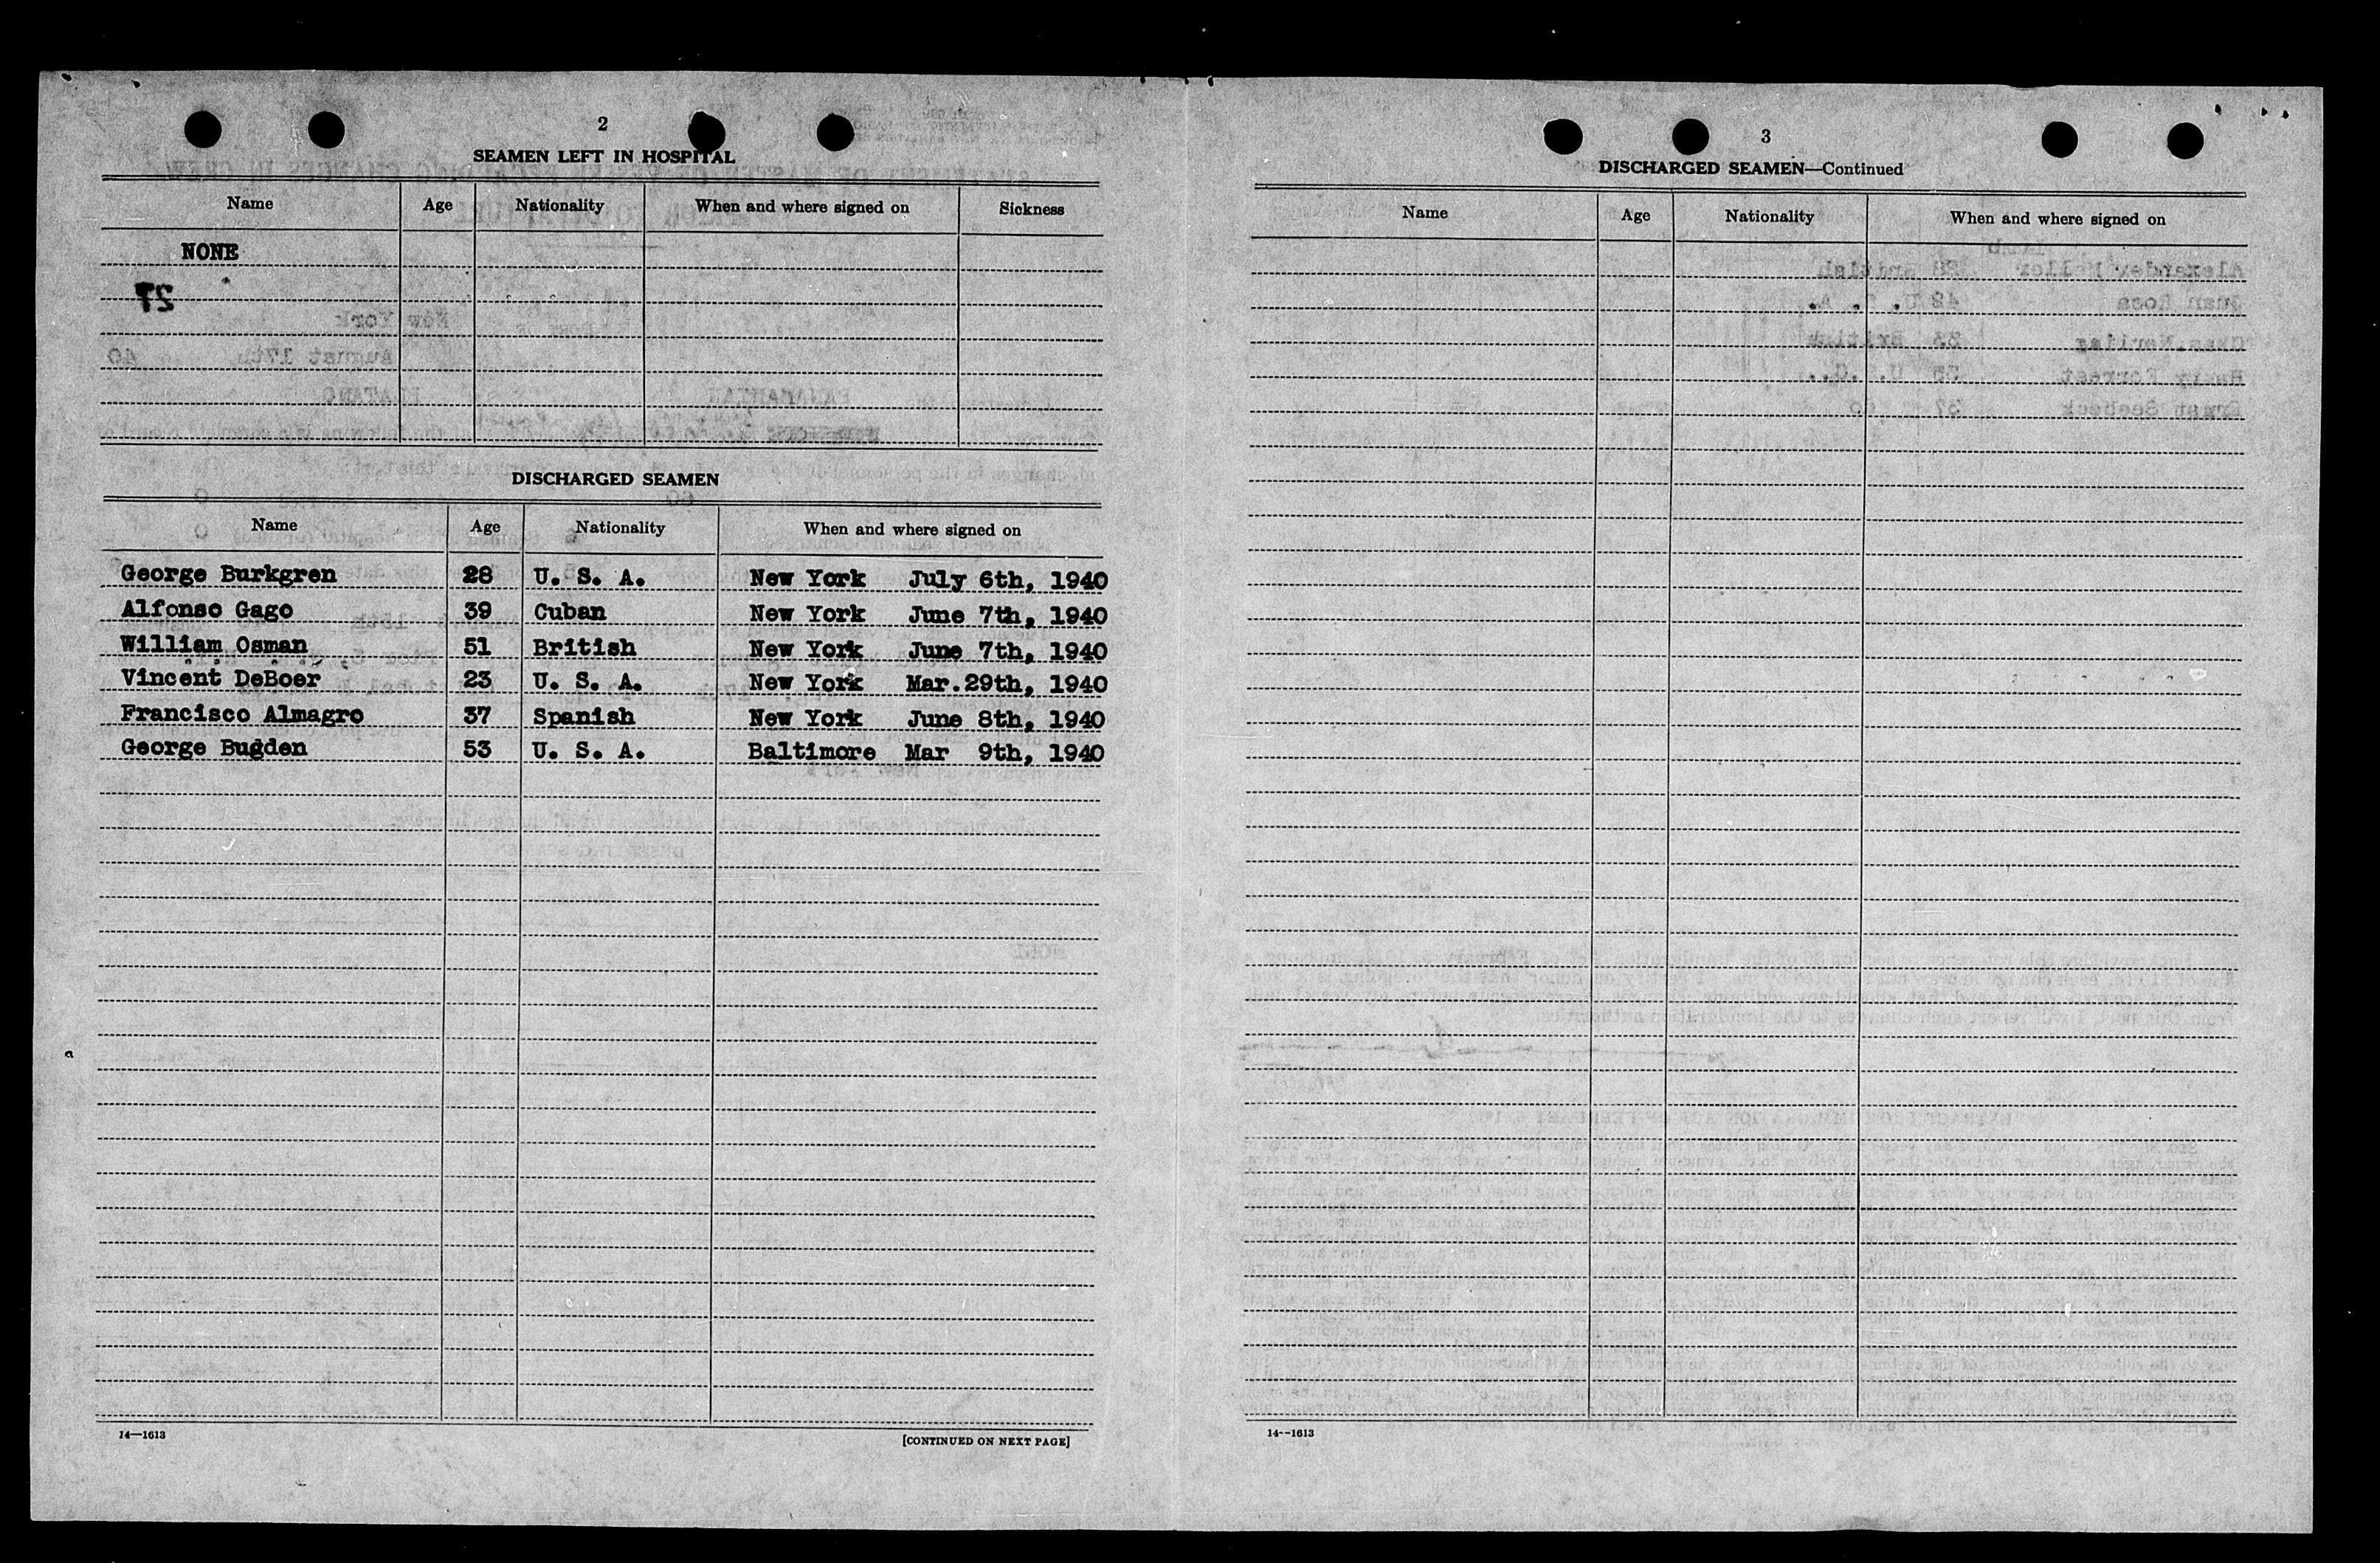 2
SEAMEN LEFT IN HOSPITAL
Name Age Nationality When and where signed on Sickness
NONE
27
DISCHARGED SEAMEN
Name Age Nationality When and where signed on
George Burkgren 28 U. S. A. New York July 6th, 1940
Alfonso Gago 39 Cuban New York June 7th, 1940
William Osman 51 British New York June 7th, 1940
Vincent DeBoer 23 U. S. A. New York Mar.29th, 1940
Francisco Almagro 37 Spanish New York June 8th, 1940
George Bugden 53 U. S. A. Baltimore Mar 9th, 1940
14—1613
[CONTINUED ON NEXT PAGE]
3
DISCHARGED SEAMEN—Continued
Name Age Nationality When and where signed on
14--1613